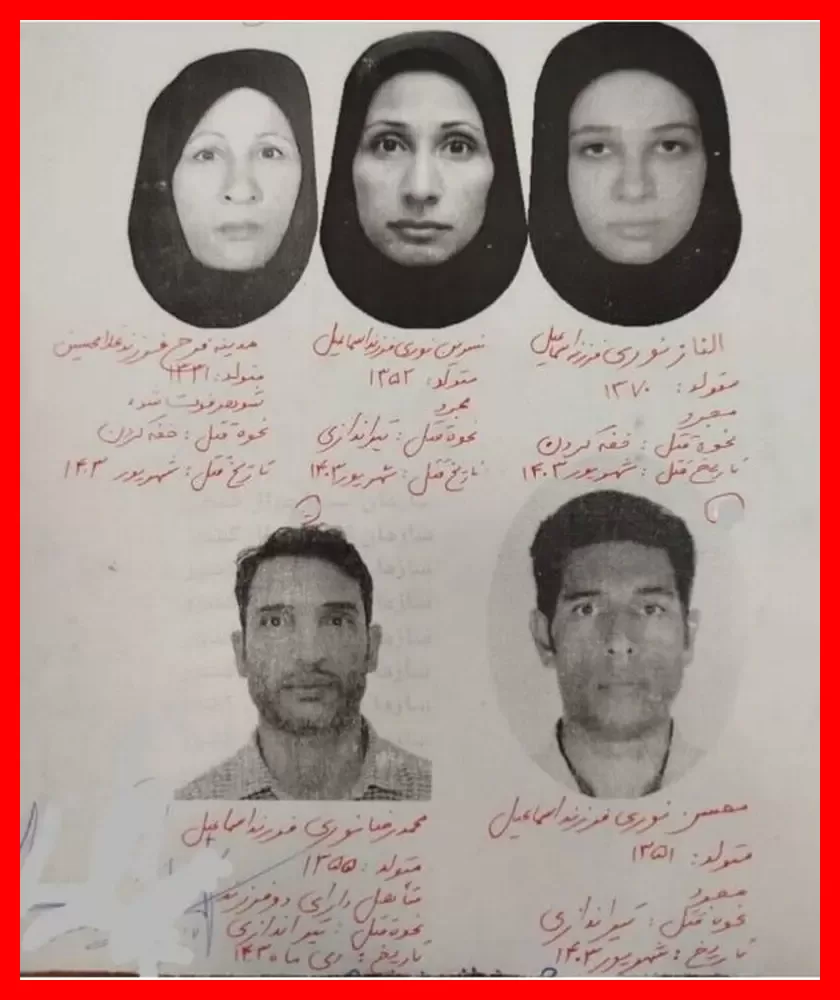 الناز نوری فرزند اسماعیل
متولد: ۱۳۷۰
مجرد
نحوه قتل: خفه کردن
تاریخ قتل: شهریور ۱۴۰۳
نسرین نوری فرزند اسماعیل
متولد: ۱۳۵۲
مجرد
نحوه قتل: تیراندازی
تاریخ قتل: شهریور ۱۴۰۳
فرزند غلامحسین
متولد: ۱۳۳۱
شوهر فوت شده
نحوه قتل: خفه کردن
تاریخ قتل: شهریور ۱۴۰۳
محسن نوری فرزند اسماعیل
متولد: ۱۳۵۱
مجرد
نحوه قتل: تیراندازی
تاریخ: شهریور ۱۴۰۳
محمدرضا نوری فرزند اسماعیل
متولد: ۱۳۵۵
متأهل دارای دو فرزند
نحوه قتل: تیراندازی
تاریخ: دی ماه ۱۴۰۳